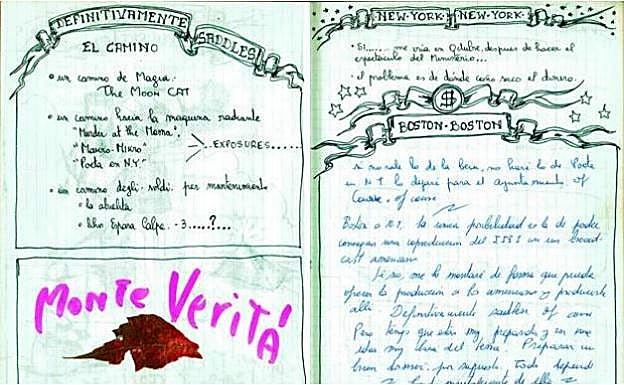 DEFINITIVAMENTE
SADDLES
EL CAMINO
• un camino de Magia.
The MOON CAT
• un camino hacia la maquina radiante
"Murder at the Moma",
"Macro-Mikro"
"Poeta en N.Y."
EXPOSURES......
• un camino degli soldi per mantenimiento
• la abuelita
• libro Espasa Calpe. - 3.....?...
MONTE VERITÁ
NEW-YORK NEW-YORK
• Si....... me iria en Octubre, despues de hacer el
espectaculo del Ministerio...
• el problema es de dónde coño saco el dinero.
$
BOSTON-BOSTON
si no sale lo de la beca, no haré lo de Poeta
en N.Y. lo dejaré para el ayuntamiento, of
Course, of course
Boston o N.Y. la unica posibilidad es la de poder
conseguir una coproduccion del
cast americano
Si se me lo montaré de forma que pueda
ofrecer la produccion a los americanos y producirlo
alli. Definitivamente saddles of
Pero tengo que estar muy preparado y
idea muy clara del tema. Preparar un
buen dossier, por supuesto. Todo depende